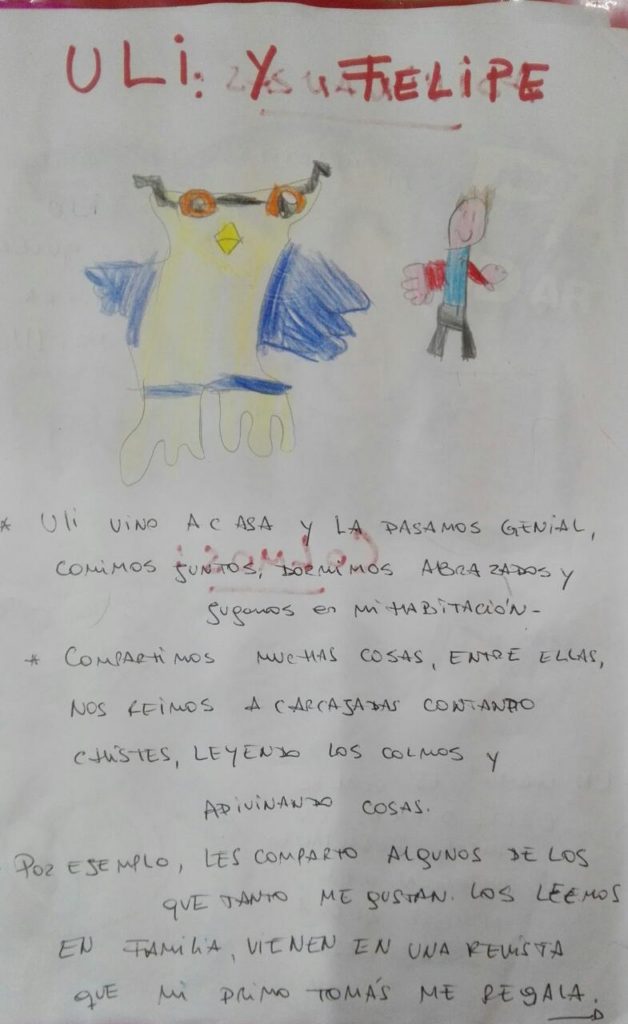 ULi: Y FELIPE
* Uli vino A CASA y LA PASAMOS GENIAL,
COMIMOS juntos, DORMIMOS ABRAZADOS y
jugamos en mi HABITACIÓN-
* COMPARTIMOS MUCHAS COSAS, ENTRE ELLAS,
NOS REIMOS A CARCAJADAS CONTANDO
CHISTES, LEYENDO LOS COLMOS y
ADIVINANDO COSAS.
POR EJEMPLO, LES COMPARTO ALGUNOS DE LOS
QUE TANTO ME GUSTAN. LOS LEEMOS
EN FAMILIA, VIENEN EN UNA REVISTA
QUE MI PRIMO TOMÁS ME REGALA.
COLMOS: